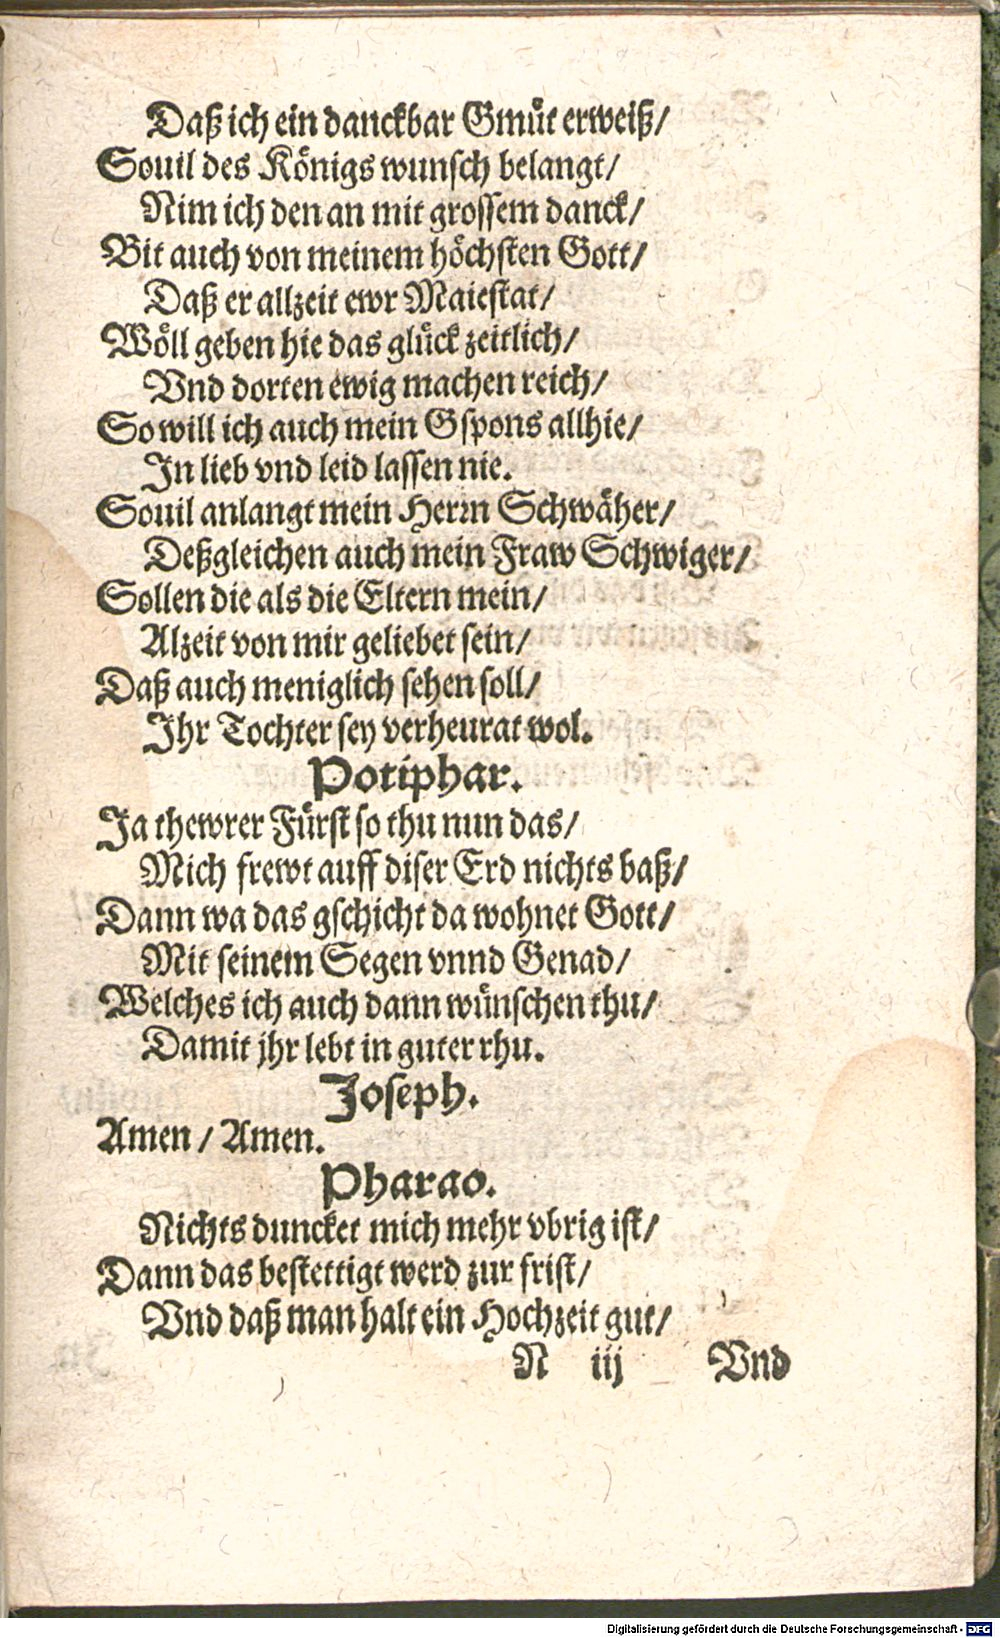 Daß ich ein danckbar Gmuͤt erweiß/
Souil des Koͤnigs wunsch belangt/
Nim ich den an mit grossem danck/
Bit auch von meinem hoͤchsten Gott/
Daß er allzeit ewr Maiestat/
Woͤll geben hie das gluͤck zeitlich/
Vnd dorten ewig machen reich/
So will ich auch mein Gspons allhie/
In lieb vnd leid lassen nie.
Souil anlangt mein Herrn Schwaͤher/
Deßgleichen auch mein Fraw Schwiger/
Sollen die als die Eltern mein/
Alzeit von mir geliebet sein/
Daß auch meniglich sehen soll/
Ihr Tochter sey verheurat wol.
Potiphar.
Ja thewrer Fuͤrst so thu nun das/
Mich frewt auff diser Erd nichts baß/
Dann wa das gschicht da wohnet Gott/
Mit seinem Segen vnnd Genad/
Welches ich auch dann wuͤnschen thu/
Damit jhr lebt in guter rhu.
Joseph.
Amen / Amen.
Pharao.
Nichts duncket mich mehr vbrig ist/
Dann das bestettigt werd zur frist/
Vnd daß man halt ein Hochzeit gut/
N iij Vnd
Digitalisierung gefördert durch die Deutsche Forschungsgemeinschaft - DFG